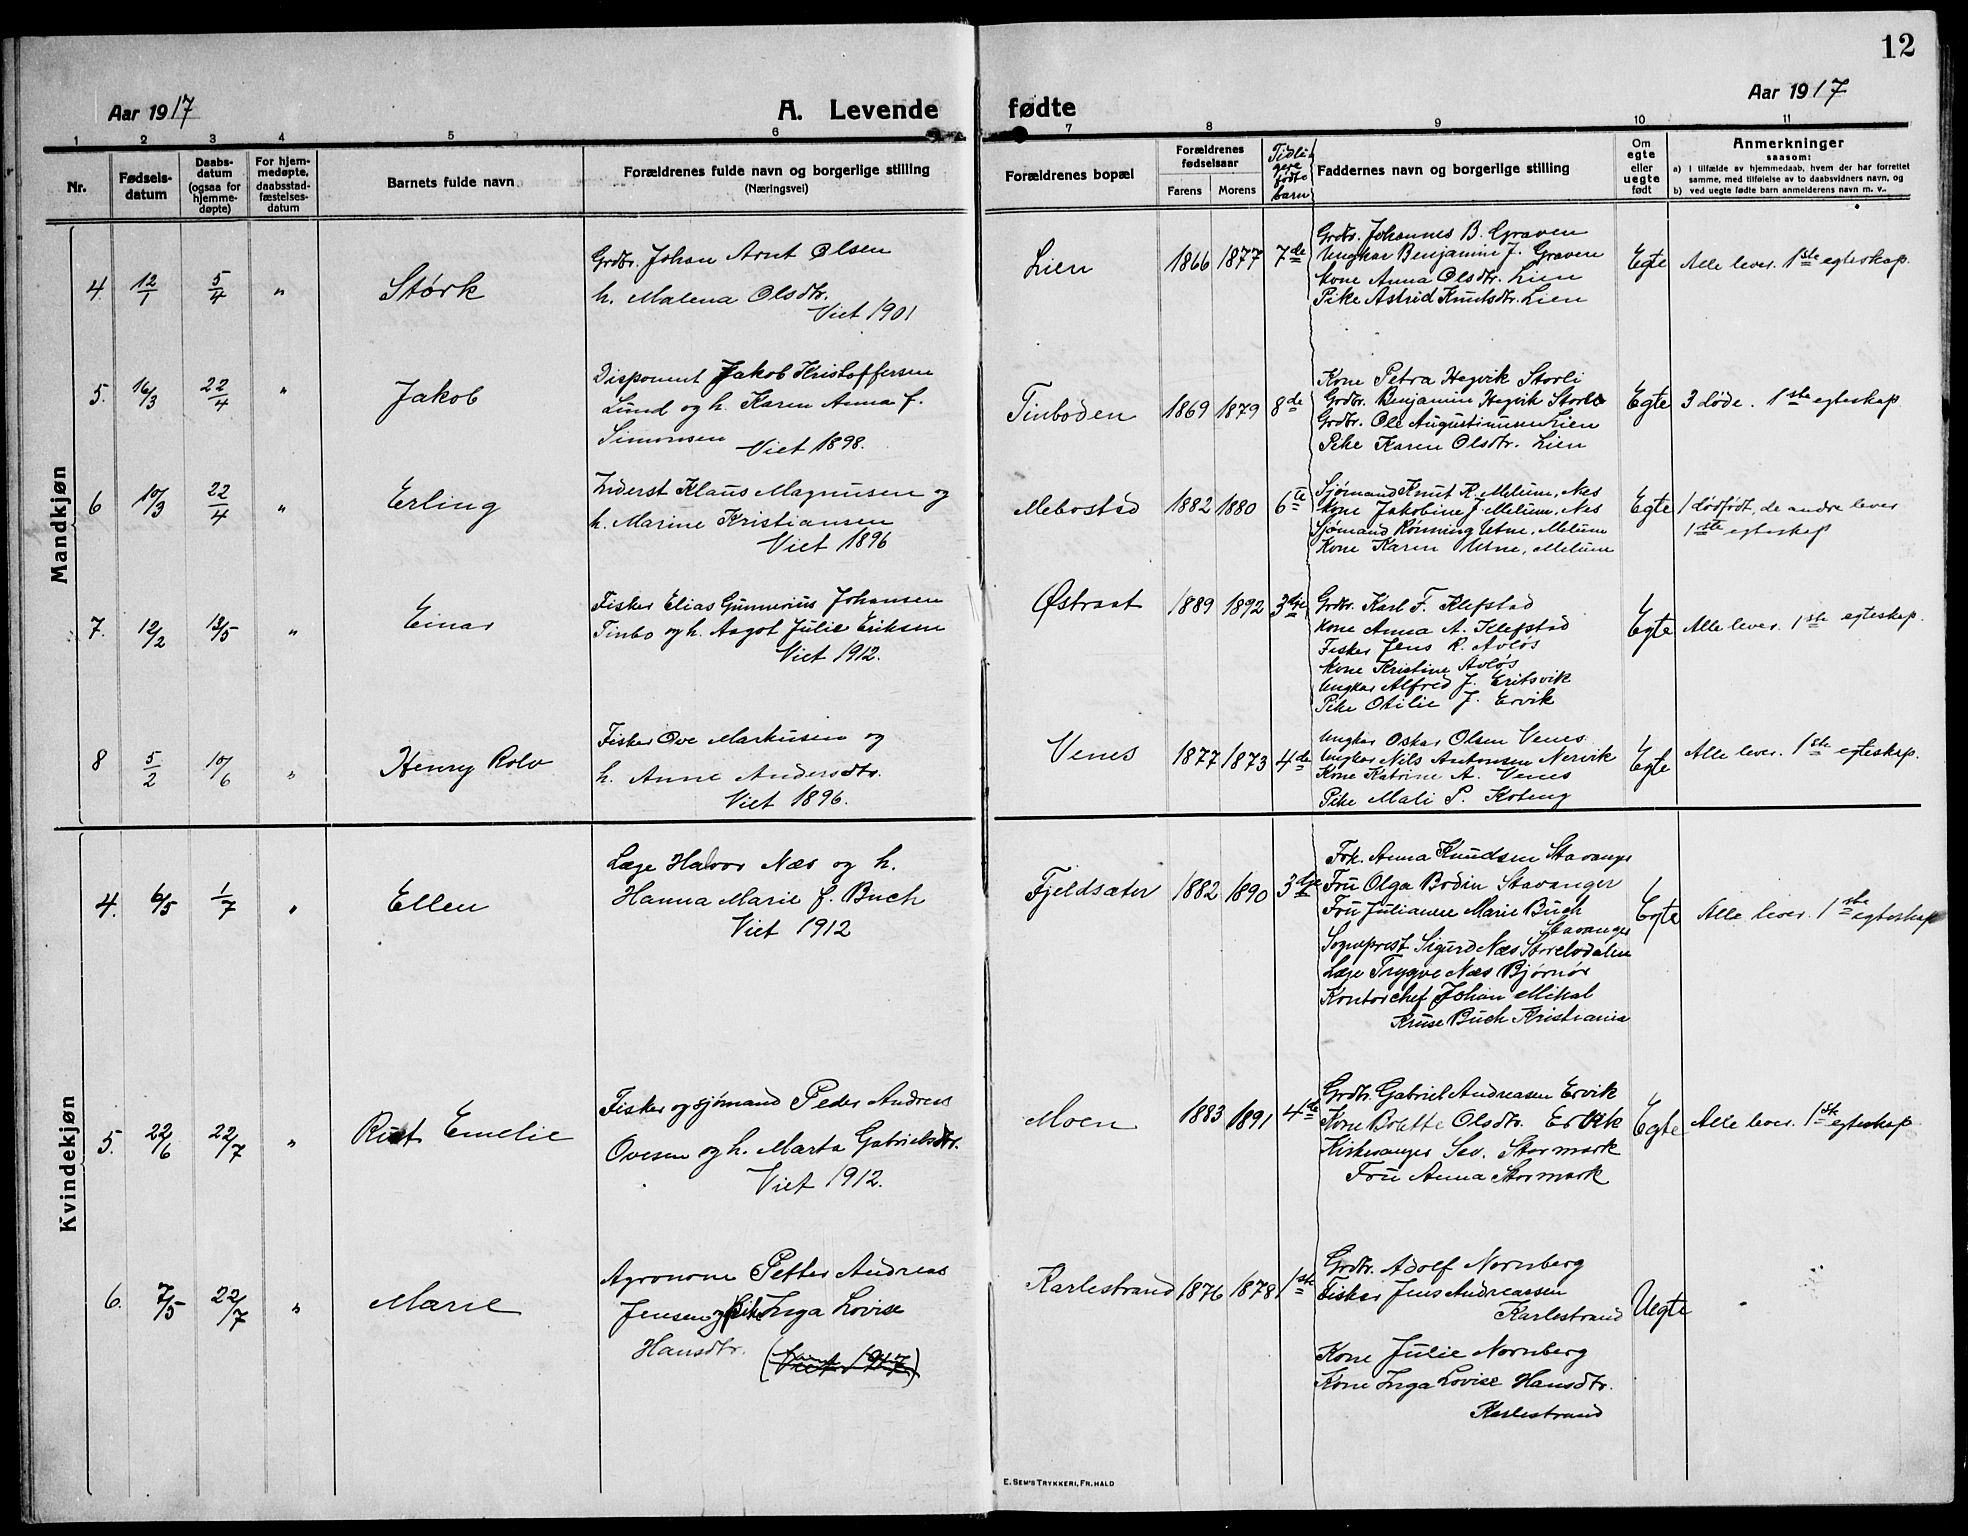 12
Aar 1917 A. Levende fødte Aar 1917
1 2 3 4 5 6 7 8 9 10 11
Nr.
Fødsels-
datum
Daabs-
datum
(ogsaa for
hjemme-
døpte)
For hjem-
medøpte,
daabsstad-
fæstelses-
datum
Barnets fulde navn
Forældrenes fulde navn og borgerlige stilling
(Næringsvei)
Forældrenes bopæl
Forældrenes
fødselsaar
Farens Morens
Tidli
gere
fødte
barn
Faddernes navn og borgerlige stilling
Om
egte
eller
uegte
født
Anmerkninger
saasom:
a) I tilfælde av hjemmedaab, hvem der har forrettet
samme, med tilføielse av to daabsvidners navn, og
b) ved uegte fødte barn anmelderens navn m. v.
Mandkjøn
4. 12/1 5/4 " Størk
Grdbr. Johan Arnt Olsen
h. Malena Olsdtr.
Viet 1901
Lien 1866 1877 7de
Grdbr. Johannes B. Graven
Ungkar Benjamin J. Graven
Kone Anna Olsdtr. Lien
Pike Astrid Knutsdtr. Lien
Egte Alle lever. 1ste egteskap.
5. 16/3 22/4 " Jakob
Disponent Jakob Kristoffersen
Lund og h. Karen Anna f.
Simonsen Viet 1898.
Tinboden 1869 1879 8de
Kone Petra Hegvik Storli
Grdbr. Benjamin Hegvik Storli
Grdbr. Ole Augustinusen Lien
Pike Karen Olsdtr. Lien
Egte 3 døde. 1ste egteskap
6 10/3 22/4 " Erling
Inderst Klaus Magnusen og
h. Marine Kristiansen
Viet 1896
Mebostad 1882 1880 6te
Sjømand Knut R. Melum, Nes
Kone Jakobine J. Melum, Nes
Sjømand Rønning Utne, Melum
Kone Karen Utne, Melum
Egte 1 dødfødt, de andre lever
1ste egteskap
7. 12/2 13/5 " Einar
Fisker Elias Gunnerius Johansen
Tinbo og h. Aagot Julie Eriksen
Viet 1912.
Østraat 1889 1892 3dje
Grdbr. Karl F. Klefstad
Kone Anna A. Klefstad
Fisker Jens R. Avløs
Kone Kristine Avløs
Ungkar Alfred J. Eritsvik
Pike Otilie J. Ervik
Egte Alle lever. 1ste egteskap.
8 5/2 10/6 " Henry Rolv
Fisker Ove Markusen og
h. Anne Andersdtr.
Viet 1896.
Venes 1877 1873 4de
Ungkar Oskar Olsen Venes
Ungkar Nils Antonsen Nervik
Kone Katrine A. Venes
Pike Mali P. Koteng
Egte Alle lever. 1ste egteskap.
Kvindekjøn
4. 6/5 1/7 " Ellen
Læge Halvor Næs og h.
Hanna Marie f. Buch
Viet 1912
Fjeldsæter 1882 1890 3dje
Frk. Anna Knudsen Stavanger
Fru Olga Bodin Stavanger
Fru Julianne Marie Buch
Stavanger
Sogneprest Sigurd Næs Storelvdalen
Læge Trygve Næs Bjørnør
Kontorchef Johan Mikal
Kruse Buch Kristiania
Egte Alle lever. 1ste egteskap
5. 22/6 22/7 " Rut Emelie
Fisker og sjømand Peder Andreas
Ovesen og h. Marta Gabrielsdtr.
Viet 1912.
Moen 1883 1891 4de
Grdbr. Gabriel Andreasen Ervik
Kone Bolette Olsdtr. Ervik
Kirkesanger Sev. Stormark
Fru Anna Stormark
Egte Alle lever. 1ste egteskap
6. 7/5 22/7 " Marie
Agronom Petter Andreas
Jensen og pike Inga Lovise
Hansdtr. (Viet 1917)
Karlestrand 1876 1878 1ste
Grdbr. Adolf Nornberg
Fisker Jens Andreassen
Karlestrand
Kone Julie Nornberg
Kone Inga Lovise Hansdtr.
Karlestrand
Uegte
E. SEM'S TRYKKERI, FR.HALD